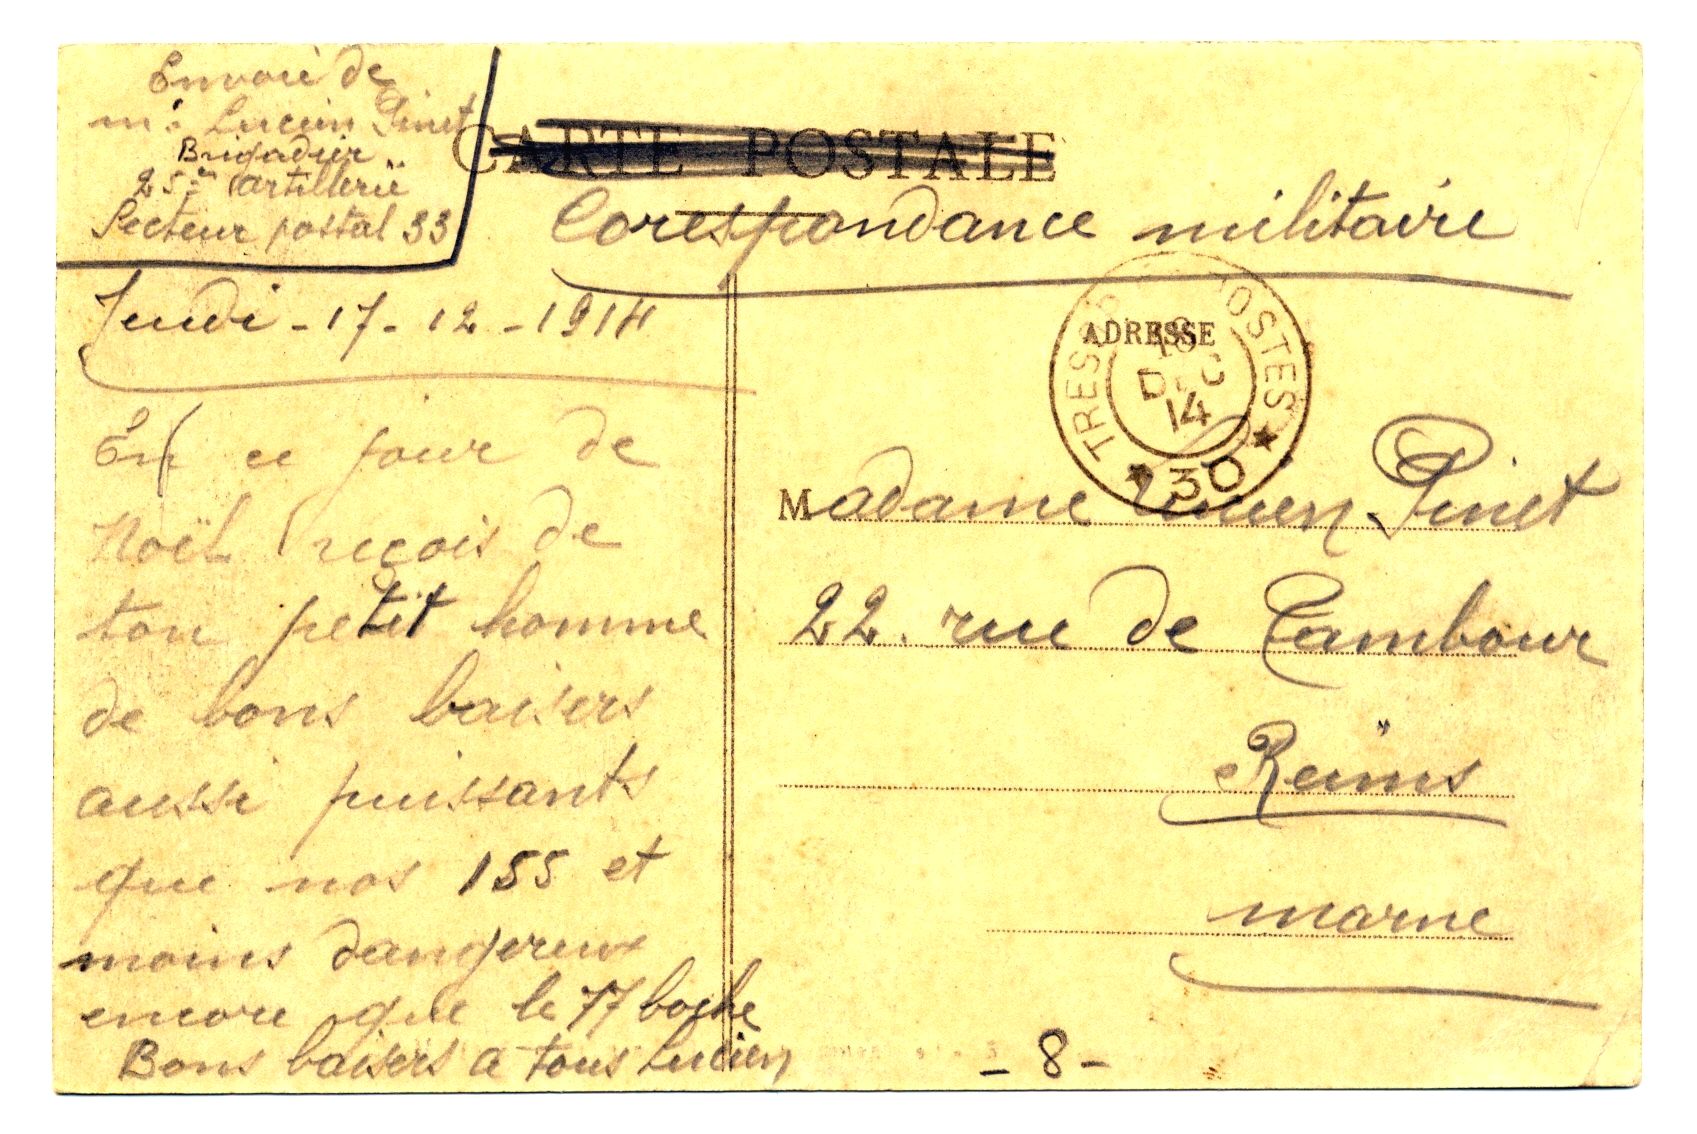 Envoie de
Mr. Lucien Pinet
Brigadier
25me artillerie
Secteur postal 33
CARTE POSTALE
Corespondance militaire
Jeudi - 17 - 12 - 1914
En ce jour de
Noël reçois de
ton petit homme
de bons baisers
aussi puissants
que nos 155 et
moins dangereux
encore que le 77 boche
Bons baisers a tous Lucien
ADRESSE
TRESOR POSTES
18
DEC
14
★ 30 ★
Madame Lucien Pinet
22. rue de Tambour
Reims
marne
- 8 -